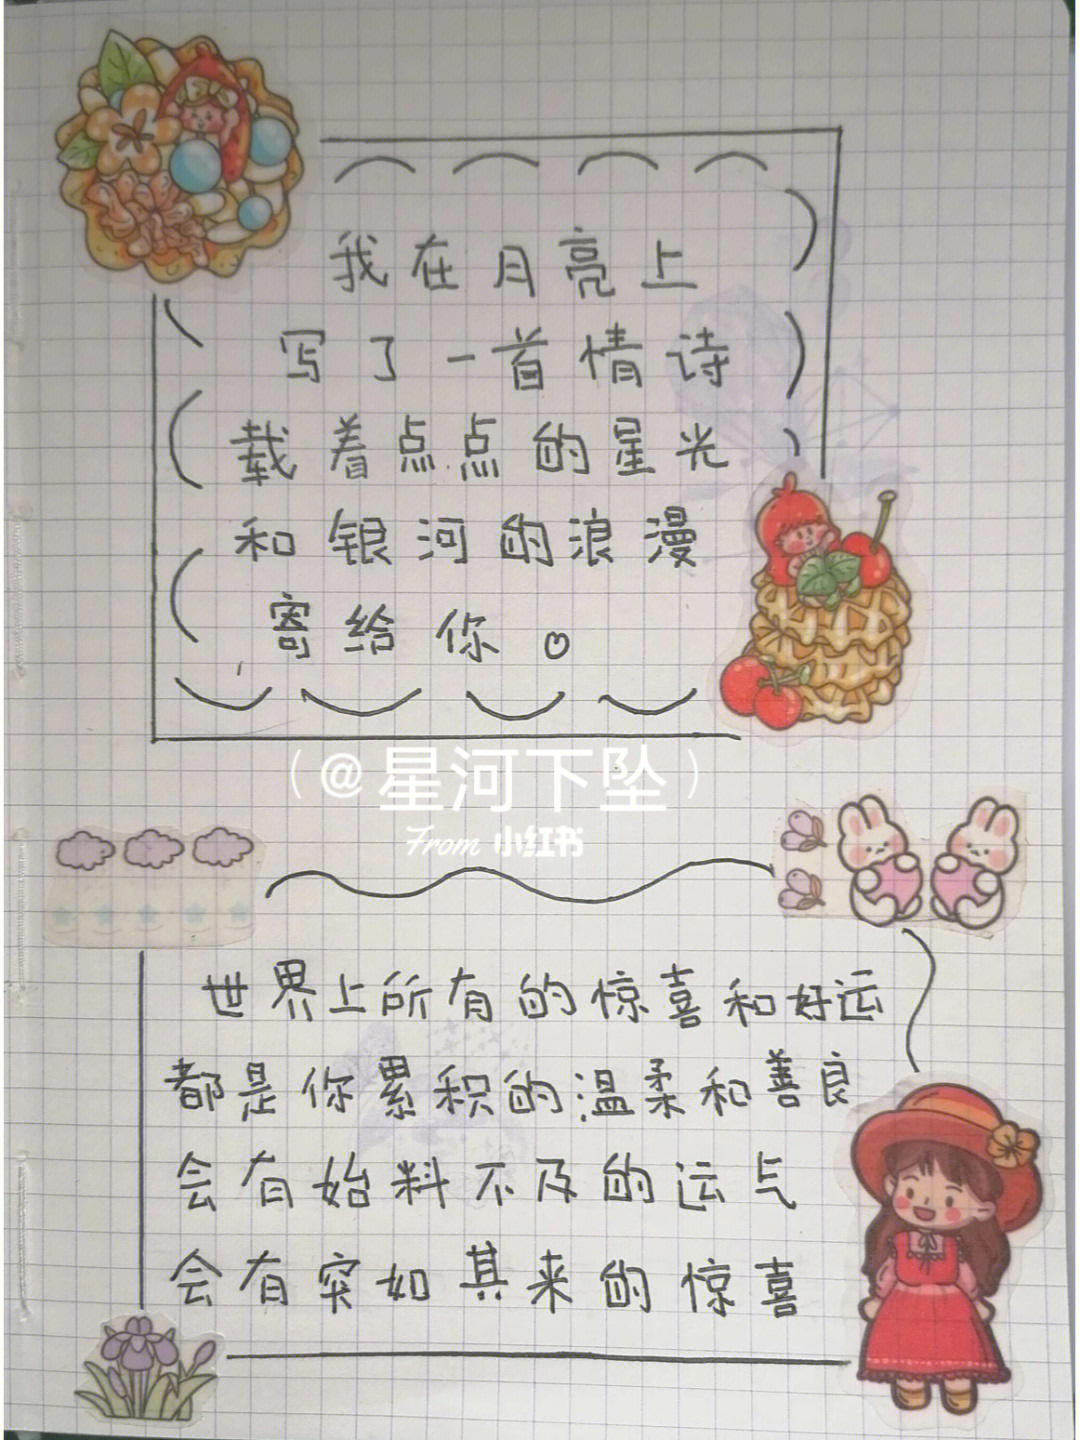 我在月亮上
写了一首情诗
载着点点的星光
和银河的浪漫
寄给你。
(@星河下坠)
From 小红书
世界上所有的惊喜和好运
都是你累积的温柔和善良
会有始料不及的运气
会有突如其来的惊喜